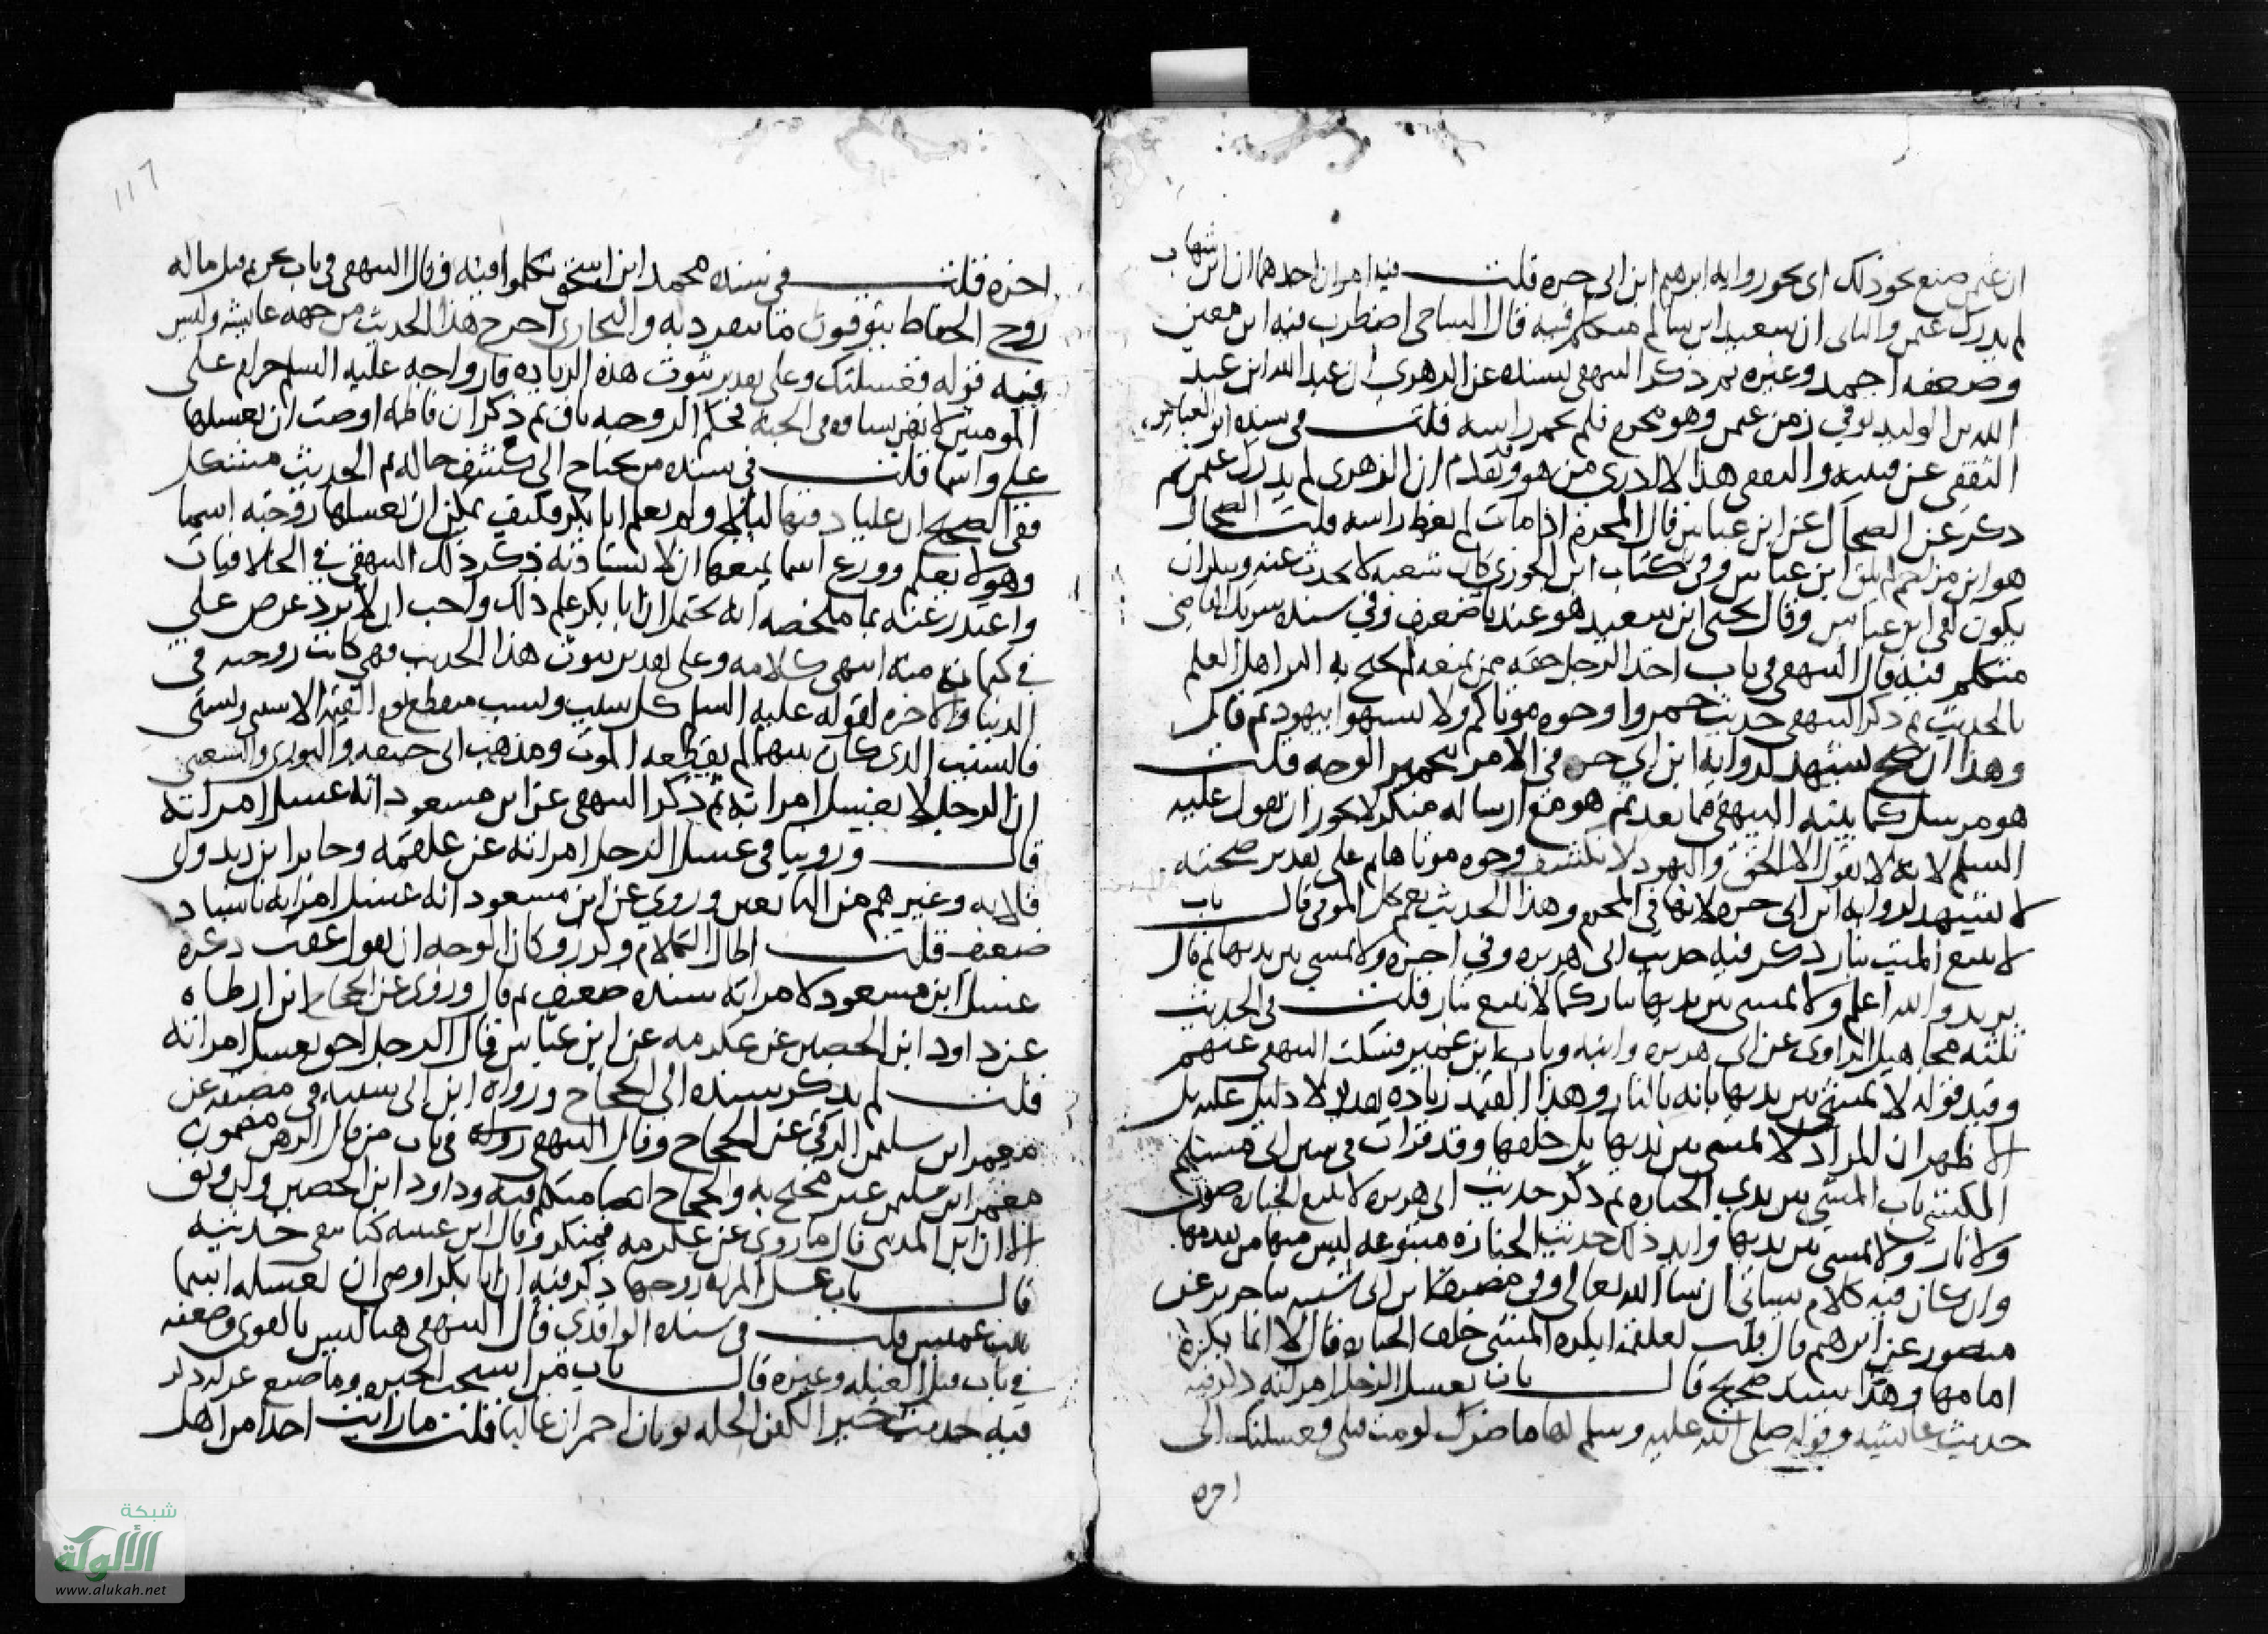 ان عثمن صنع نحو ذلك اى نحو رواية ابرهيم ابن ابى حره قلت فيه امران احدهما ان ابن شهاب
لم يدرك عثمن والثانى ان سعيد ابن سالم متكلم فيه قال الساجى اضطرب فيه ابن معين
وضعفه احمد وغيره ثم ذكر البيهقى بسنده عن الزهرى ان عبد الله ابن عبد
الله بن الوليد توفي زمن عثمن وهو محرم فلم يخمر راسه قلت فى سنده ابو العباس
الثقفي عن قتيبه والثقفى هذا لا ادرى من هو وتقدم ان الزهرى لم يدرك عثمن ثم
ذكر عن الضحاك عن ابن عباس قال المحرم اذا مات لم يغط راسه قلت الضحاك
هو ابن مزاحم لم يلق ابن عباس وفي كتاب ابن الجوزي كان شعبه لا يحدث عنه وينكر ان
يكون لقى ابن عباس وقال يحيى ابن سعيد هو عندنا ضعيف وفي سنده شريك القاضى
متكلم فيه قال البيهقى فى باب اخذ الرجل حقه ممن يمنعه لم يحتج به اكثر اهل العلم
بالحديث ثم ذكر البيهقى حديث خمروا وجوه موتاكم ولا تشبهوا بيهود ثم قال
وهذا ان صح يشهد لرواية ابن ابي حره في الامر بتخمير الوجه قلت
هو مرسل كما بينه البيهقى فيما بعد ثم هو مع ارساله منكر لا يجوز ان يقول عليه
السلم لانه لا يقول الا الحق واليهود لا تكشف وجوه موتاها ثم على تقدير صحته
لا يشهد لرواية ابن ابى حره لانها في المحرم وهذا الحديث يعم كل الموتى قال باب
لا يتبع الميت بنار ذكر فيه حديث ابى هريره وفي اخره ولا يمشى بين يديها ثم قال
يريد والله اعلم ولا يمشى بين يديها بنار كما لا يتبع بنار قلت فى الحديث
ثلثه مجاهيل الراوى عن ابى هريره وابنه وباب ابن عمير فسكت البيهقى عنهم
وقيد قوله لا يمشى بين يديها بانه بالنار وهذا القيد زياده بعد لا دليل عليه بل
الاظهر ان المراد لا يمشى بين يديها بل خلفها وقد قرات فى سنن ابى مسلم
الكشي باب المشى بين يدي الجنازه ثم ذكر حديث ابى هريره لا يتبع الجنازه صوت
ولا نار ولا يمشى بين يديها وايد ذلك حديث الجنازه متبوعه ليس منها من تقدمها
وان كان فيه كلام سياتى ان شا الله تعالى وفى مصنف ابن ابى شيبه نا جرير عن
منصور عن ابرهيم قال قلت لعلقمه ايكره المشى خلف الجنازه قال لا انما يكره
امامها وهذا سند صحيح قال باب يغسل الرجل امراته ذكر فيه
حديث عائشه وقوله صلى الله عليه وسلم لها ما ضرك لو مت قبلى فغسلتك الى
اخره
١١٦
اخره قلت فى سنده محمد ابن اسحق تكلموا فيه وقال البيهقى فى باب تحريم قتل ماله
روح الحفاظ يتوقون ما ينفرد به والبخارى اخرج هذا الحديث من جهة عائشه وليس
فيه قوله فغسلتك وعلى تقدير ثبوت هذه الزياده فازواجه عليه السلم حرام على
المومنين لانهن نساوه فى الجنه فحكم الزوجيه باق ثم ذكر ان فاطمه اوصت ان يغسلها
على واسما قلت فى سنده من يحتاج الى كشف حاله ثم الحديث مشكل
ففى الصحيح ان عليا دفنها ليلا ولم يعلم ابا بكر فكيف يمكن ان يغسلها زوجته اسما
وهو لا يعلم وورع اسما يمنعها ان لا تستاذنه ذكر ذلك البيهقى في الخلافيات
واعتذر عنه بما ملخصه انه يحتمل ان ابا بكر علم ذلك واحب ان لا يرد غرض علي
في كتمانه منه انتهى كلامه وعلى تقدير ثبوت هذا الحديث فهى كانت زوجته فى
الدنيا والاخره لقوله عليه السلم كل سبب ونسب منقطع يوم القيمه الا سببى ونسبى
فالسبب الذى كان بينهما لم يقطعه الموت ومذهب ابى حنيفه والثورى والشعبى
ان الرجل لا يغسل امراته ثم ذكر البيهقى عن ابن مسعود انه غسل امراته
قال وروينا فى غسل الرجل امراته عن علقمه وجابر ابن زيد وابى
قلابه وغيرهم من التابعين وروي عن ابن مسعود انه غسل امراته باسناد
ضعيف قلت اطال الكلام وكرره وكان الوجه ان يقول عقب ذكره
غسل ابن مسعود لامراته سنده ضعيف ثم قال وروى عن الحجاج ابن ارطاه
عن داود ابن الحصين عن عكرمه عن ابن عباس قال الرجل احق بغسل امراته
قلت لم يذكر سنده الى الحجاج ورواه ابن ابى شيبه فى مصنفه عن
معمر ابن سليمن الرقى عن الحجاج وقال البيهقى فى باب من قال الرهن مضمون
معمر ابن سليمن غير محتج به والحجاج ايضا متكلم فيه وداود ابن الحصين وان وثق
الا ان ابن المدينى قال ما روى عن عكرمه فمنكر وقال ابن عيينه كنا نتقى حديثه
قال باب غسل المراه زوجها ذكر فيه ان ابا بكر اوصى ان تغسله اسما
بنت عميس قلت فى سنده الواقدي قال البيهقى هنا ليس بالقوى وضعفه
في باب قتل الغيله وغيره قال باب من استحب الحبره وما صنع غزله ذكر
فيه حديث خير الكفن الحله ثوبان احمران غالبا قلت ما رايت احدا من اهل
شبكة
الألوكة
www.alukah.net